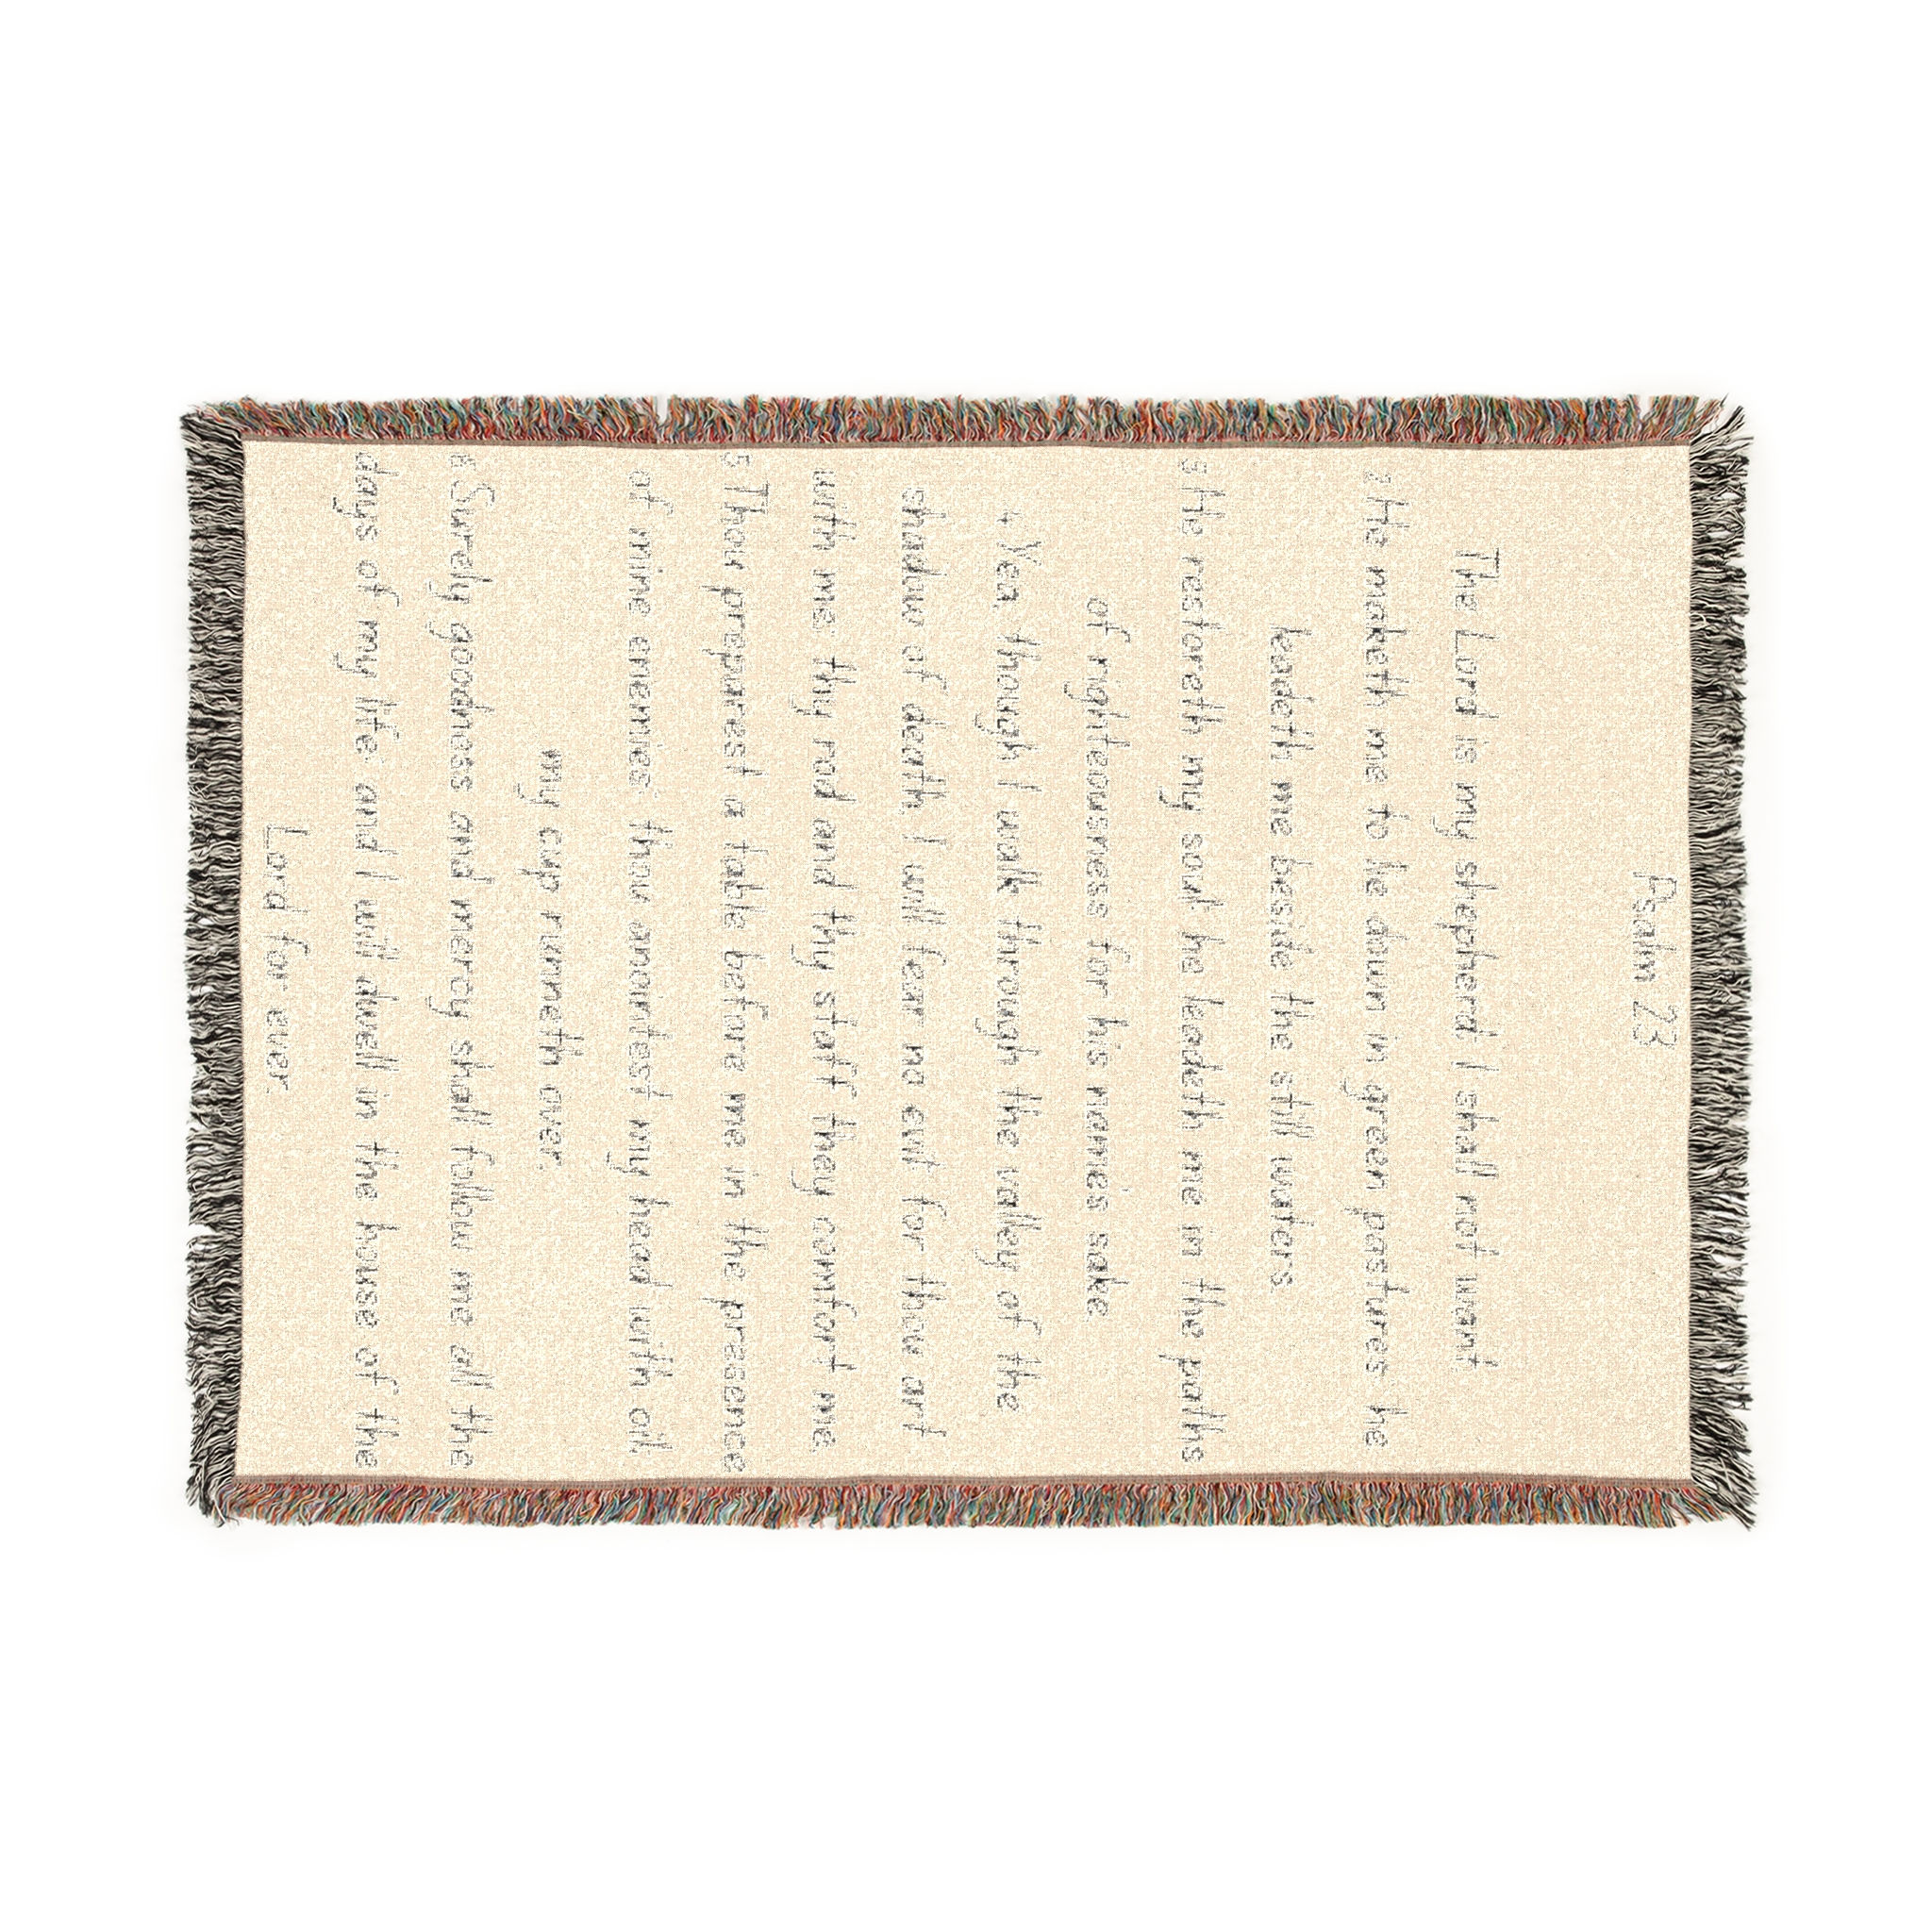 Psalm 23
The Lord is my shepherd I shall not want
2 He maketh me to lie down in green pastures he
leadeth me beside the still waters.
3 He restoreth my soul: he leadeth me in the paths
of righteousness for his name's sake
4 Yea, though I walk through the valley of the
shadow of death, I will fear no evil for thou art
with me: thy rod and thy staff they comfort me
5 Thou preparest a table before me in the presence
of mine enemies: thou anointest my head with oil
my cup runneth over.
6 Surely goodness and mercy shall follow me all the
days of my life: and I will dwell in the house of the
Lord for ever.